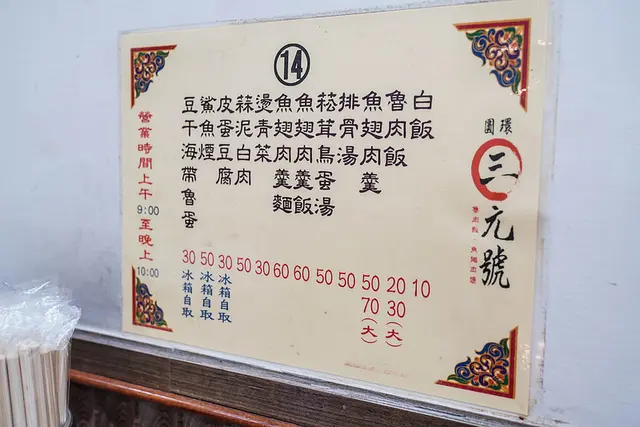 14
圓環
三元號
魯肉飯・魚翅肉羹
白飯 10
魯肉飯 20 30(大)
魚翅肉羹 50 70(大)
排骨湯 50
菘茸鳥蛋湯 50
魚翅肉羹飯 60
魚翅肉羹麵 60
燙青菜 30
蒜泥白肉 50
皮蛋豆腐 30 冰箱自取
鯊魚煙 50 冰箱自取
豆干海帶魯蛋 30 冰箱自取
營業時間上午9:00至晚上10:00